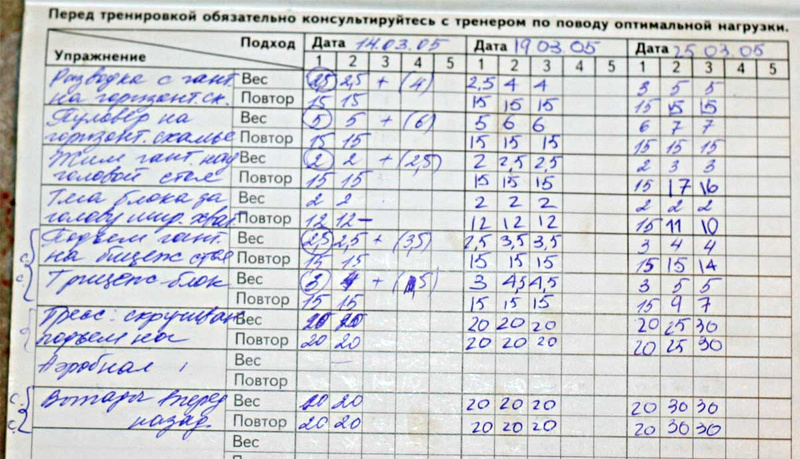 Перед тренировкой обязательно консультируйтесь с тренером по поводу оптимальной нагрузки.
Упражнение Подход Дата 14.03.05 Дата 19 03.05 Дата 25 03.05
1 2 3 4 5 1 2 3 4 5 1 2 3 4 5
Разводка с гант. Вес 2,5 2,5 + (4) 2,5 4 4 3 5 5
на горизонт. ск. Повтор 15 15 15 15 15 15 15 15
Пуловер на Вес 5 5 + (6) 5 6 6 6 7 7
горизонт. скамье Повтор 15 15 15 15 15 15 15 15
Жим гант. над Вес 2 2 + (2,5) 2 2,5 2,5 2 3 3
головой стоя Повтор 15 15 15 15 15 15 17 16
Тяга блока за Вес 2 2 2 2 2 2 2 2
голову шир. хват. Повтор 12 12 – 12 12 12 15 11 10
Подъем гант. Вес 2,5 2,5 + (3,5) 2,5 3,5 3,5 3 4 4
на бицепс стоя Повтор 15 15 15 15 15 15 15 14
Трицепс блок Вес 3 + 3 4,5 4,5 3 5 5
Повтор 15 15 15 15 15 15 9 7
Пресс: скручиван Вес 20 20 20 20 20 20 25 30
подъем ног Повтор 20 20 20 20 20 20 25 30
Аэробная Вес
Повтор
Выпады вперед Вес 20 20 20 20 20 20 30 30
назад. Повтор 20 20 20 20 20 20 30 30
Вес